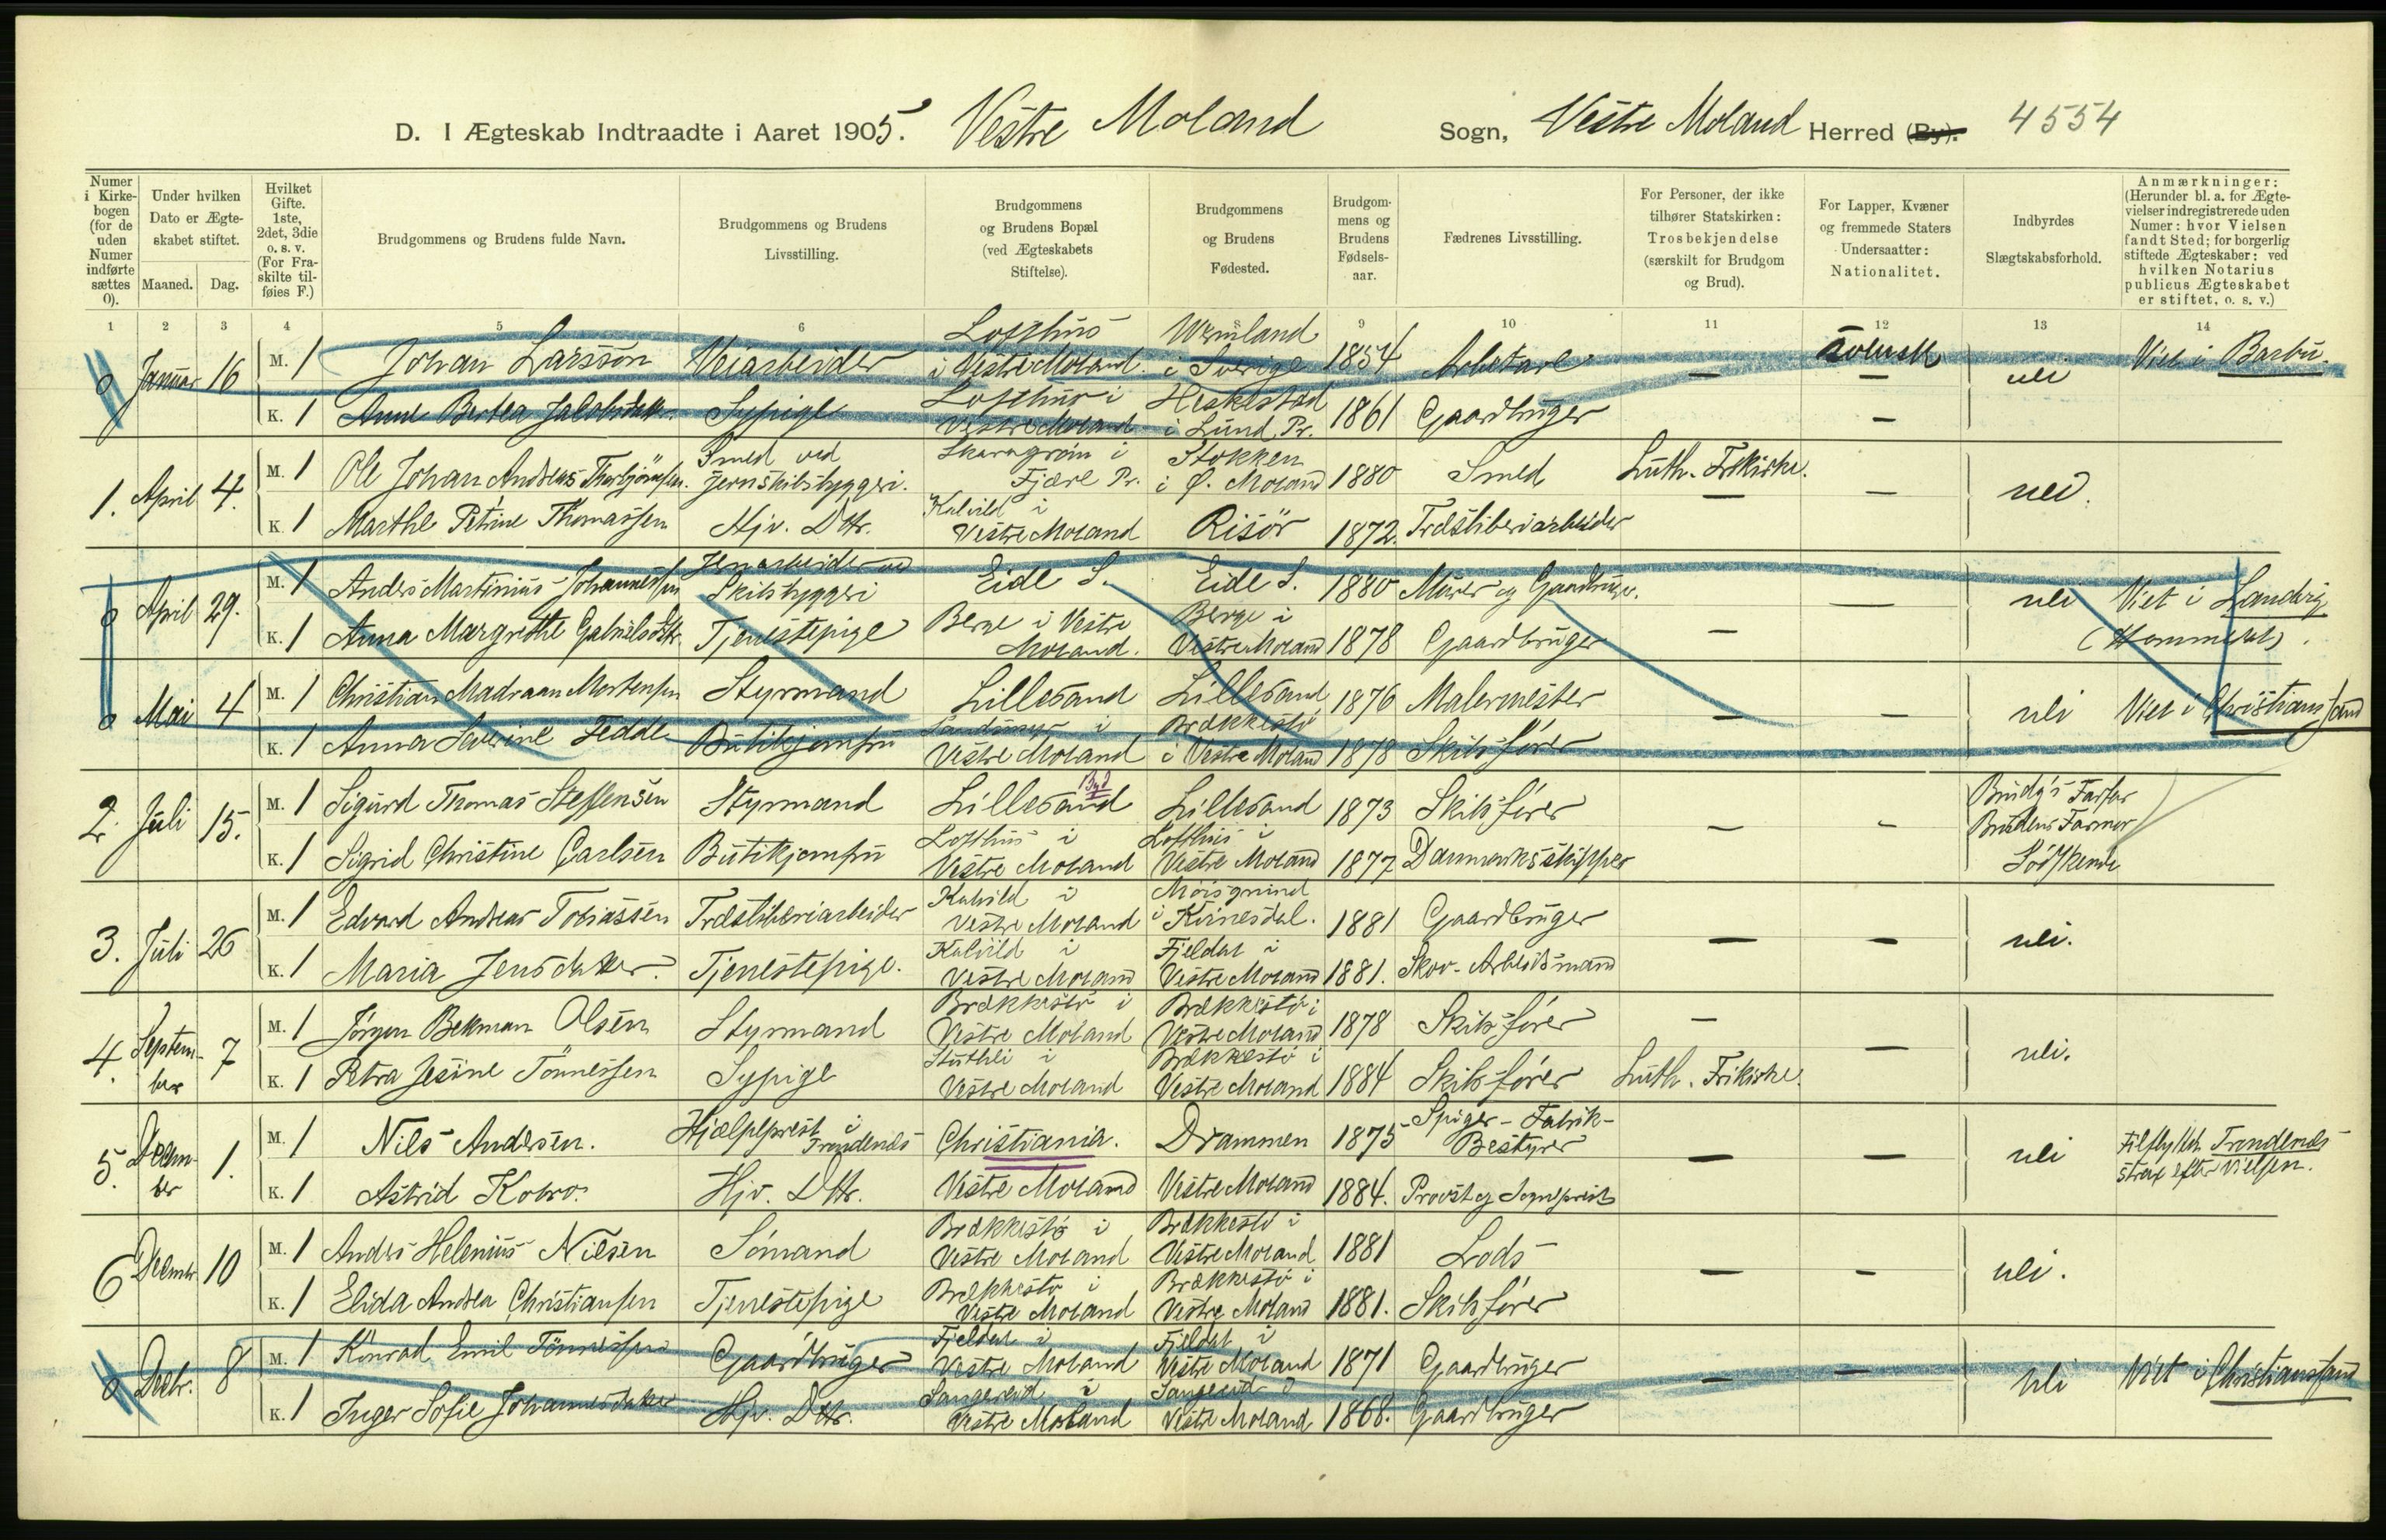 D. I Ægteskab Indtraadte i Aaret 1905. Vestre Moland Sogn, Vestre Moland Herred (By). 4554
Numer i Kirke-bogen (for de uden Numer indførte sættes 0).
Under hvilken Dato er Ægte-skabet stiftet.
Maaned. Dag.
Hvilket Gifte. 1ste, 2det, 3die o. s. v. (For Fra-skilte til-føies F.)
Brudgommens og Brudens fulde Navn.
Brudgommens og Brudens Livsstilling.
Brudgommens og Brudens Bopæl (ved Ægteskabets Stiftelse).
Brudgommens og Brudens Fødested.
Brudgom-mens og Brudens Fødsels-aar.
Fædrenes Livsstilling.
For Personer, der ikke tilhører Statskirken: Trosbekjendelse (særskilt for Brudgom og Brud).
For Lapper, Kvæner og fremmede Staters Undersaatter: Nationalitet.
Indbyrdes Slægtskabsforhold.
Anmærkninger: (Herunder bl. a. for Ægte-vielser indregistrerede uden Numer: hvor Vielsen fandt Sted; for borgerlig stiftede Ægteskaber: ved hvilken Notarius publicus Ægteskabet er stiftet, o. s. v.)
1 2 3 4 5 6 7 8 9 10 11 12 13 14
0 Januar 16 M. 1 Johan Larsson Veiarbeider Lofthus i Vestre Moland. Wermland i Sverige 1854 Arbetare — Svensk — uli Viet i Barbu.
K. 1 Anne Bertea Jakobsdatter Sypige Lofthus i Vestre Moland Heskestad i Lund Pr. 1861 Gaardbruger —
1. April 4. M. 1 Ole Johan Andreas Thorbjörnsen. Smed ved Jernskibsbyggeri. Fjære Pr. Stokken i Ø. Moland 1880 Smed Luth. Frikirke. — —
K. 1 Marthe Petrine Thomassen Hjv. Dttr. Kalvild i Vestre Moland Risör 1872. Træsliberiarbeider
0 April 29. M. 1 Anders Martinius Johannessen Jernarbeider ved Skibsbyggeri Eide S. Eide S. 1880 Murer og Gaardbruger. — uli Viet i Landvig (Hommedal).
K. 1 Anna Margrethe Gabrielsdttr. Tjenestepige Berge i Vestre Moland. Berge i Vestre Moland 1878 Gaardbruger —
0 Mai 4 M. 1 Christian Mortensen Styrmand Lillesand Lillesand 1876 Malermester — — uli Viet i Christianssand
K. 1 Anna Severine Fedde Butikjomfru Vestre Moland Brækkestö i Vestre Moland 1878 Skibsfører
2. Juli 15. M. 1 Sigurd Thomas Steffensen Styrmand Lillesand By Lillesand 1873 Skibsfører — — Brudg's Farfar Brudens Farmor Södskende
K. 1 Sigrid Christine Carlsen Butikjomfru Lofthus i Vestre Moland Lofthus i Vestre Moland 1877 Danmarksskipper
3. Juli 26 M. 1 Edvard Andreas Tobiassen Træsliberiarbeider Kalvild i Vestre Moland i Kvinesdal. 1881 Gaardbruger — — uli.
K. 1 Maria Jensdatter. Tjenestepige. Kalvild i Vestre Moland Fjeldal i Vestre Moland 1881. Skov-Arbeidsmand
4. September 7 M. 1 Jörgen Bekman Olsen Styrmand Brækkestö i Vestre Moland Brækkestö i Vestre Moland 1878 Skibsfører — — uli.
K. 1 Petra Jesine Tönnessen Sypige Vestre Moland Brækkestö i Vestre Moland 1884 Skibsfører Luth. Frikirke.
5. December 1. M. 1 Nils Andersen. Hjælpeprest i Trondenes Christiania. Drammen 1875 Spiger-Fabrik-Bestyrer — — uli Trondenes strax efter Vielsen.
K. 1 Astrid Kobro. Hjv. Dttr. Vestre Moland Vestre Moland 1884. Provst og Sogneprest
6 Decembr. 10 M. 1 Anders Helenius Nilsen Sömand Brækkestö i Vestre Moland Brækkestö i Vestre Moland 1881 Lods — — uli.
K. 1 Elida Andrea Christiansen Tjenestepige Brækkestö i Vestre Moland Brækkestö i Vestre Moland 1881. Skibsfører
0 Decbr. 8 M. 1 Konrad Emil Tönnessen Gaardbruger Fjeldal i Vestre Moland Fjeldal i Vestre Moland 1871 Gaardbruger — — uli Viet i Christianssand
K. 1 Inger Sofie Johannesdatter Hjv. Dttr. Sangereid i Vestre Moland Sangereid i Vestre Moland 1868. Gaardbruger